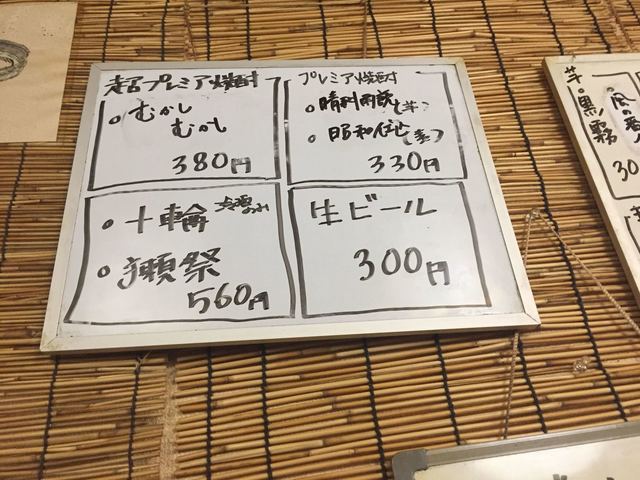 超プレミア焼酎
むかし
むかし
380円
プレミア焼酎
晴耕雨読(芋)
(麦)
330円
十輪
獺祭
560円
生ビール
300円
芋・黒霧
風の
30